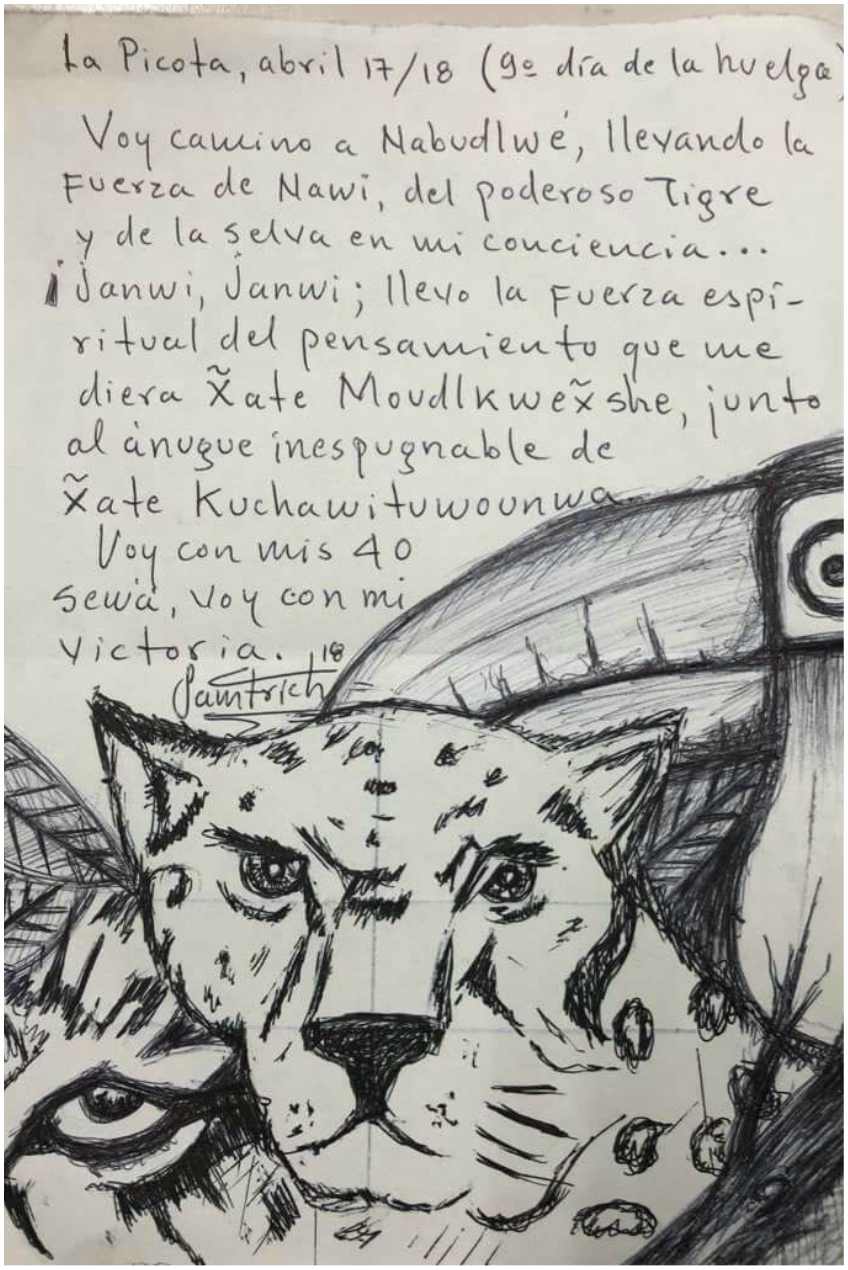 La Picota, abril 17/18 (9º día de la huelga)
Voy camino a Nabudlwé, llevando la
Fuerza de Nawi, del poderoso Tigre
y de la selva en mi conciencia...
¡Janwi, Janwi; llevo la Fuerza espi-
ritual del pensamiento que me
diera X̃ate Moudlkwex̃she, junto
al ánugue inespugnable de
X̃ate Kuchawituwounwa.
Voy con mis 40
sewá, voy con mi
victoria.
Santrich 18